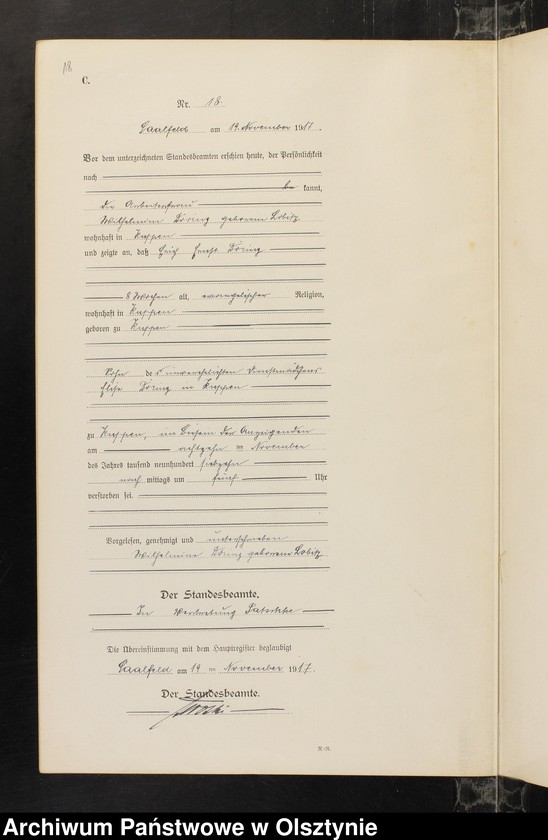 18
C.
Nr. 18.
Saalfeld am 19. November 1917.
Vor dem unterzeichneten Standesbeamten erschien heute, der Persönlichkeit
nach
be kannt,
die Arbeiterfrau
Wilhelmine Döring geborene Lobitz
wohnhaft in Kuppen
und zeigte an, daß Erich Ernst Döring
8 Wochen alt, evangelischer Religion,
wohnhaft in Kuppen
geboren zu Kuppen
Sohn des unverehelichten Dienstmädchens
Elise Döring in Kuppen
zu Kuppen, im Beisein der Anzeigenden
am achtzehn ten November
des Jahres tausend neunhundert siebzehn
nach mittags um fünf Uhr
verstorben sei.
Vorgelesen, genehmigt und unterschrieben
Wilhelmine Döring geborene Lobitz
Der Standesbeamte.
In Vertretung
Die Übereinstimmung mit dem Hauptregister beglaubigt
Saalfeld am 19 ten November 1917.
Der Standesbeamte.
Archiwum Państwowe w Olsztynie